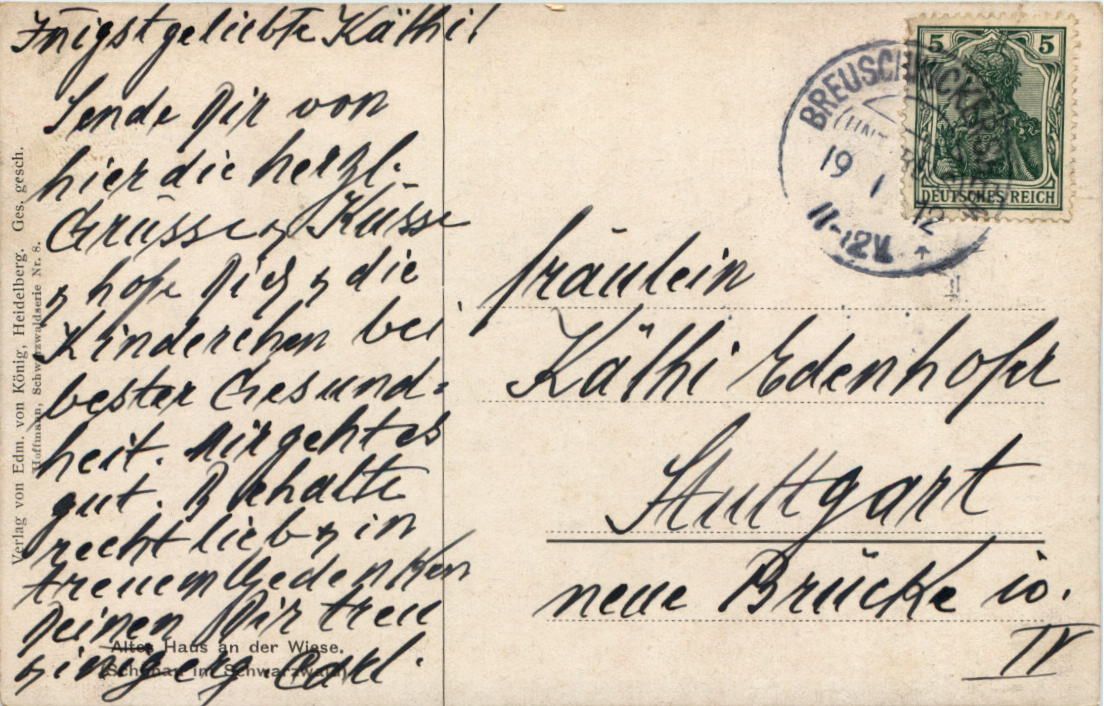 Innigst geliebte Käthi!
Sende Dir von
hier die herzl.
Grüsse & Küsse
& hoffe Dich & die
Kinderchen bei
bester Gesund-
heit. Mir geht es
gut. Behalte
recht lieb & in
treuem Gedenken
Deinen Dir treu
& innigerg. Carl.
Altes Haus an der Wiese.
Schönau im Schwarzwald.
Verlag von Edm. von König, Heidelberg. Ges. gesch.
Hoffmann, Schwarzwaldserie Nr. 8.
BREUSCHWICKERSHEIM
19 1 12
11-12V
5 5
DEUTSCHES REICH
Fräulein
Käthi Edenhofer
Stuttgart
neue Brücke 10.
IV